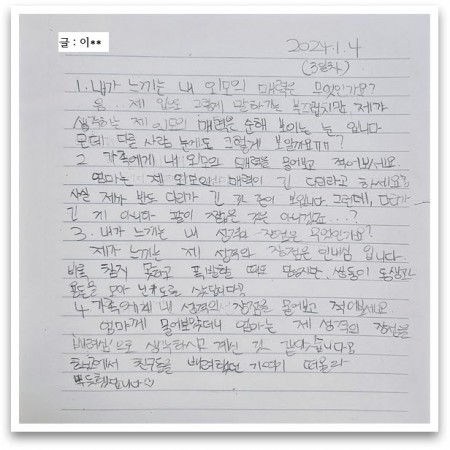 글 : 이**
2024.1.4
(3일차)
1. 내가 느끼는 내 외모의 매력은 무엇인가요?
음... 제 입으로 그렇게 말하기는 부끄럽지만 제가
생각하는 제 외모의 매력은 순해 보이는 눈 입니다
근데 다른 사람 눈에도 그렇게 보일까요ㅠㅠ?
2. 가족에게 내 외모의 매력을 물어보고 적어보세요.
엄마는 제 외모의 매력이 긴 다리라고 하세요?
사실 제가 봐도 다리가 긴 것 같이 보입니다. 그런데, 다리가
긴 게 아니라 팔이 짧은 것은 아니겠죠...?
3. 내가 느끼는 내 성격의 장점은 무엇인가요?
제가 느끼는 제 성격의 장점은 인내심 입니다.
비록 참지 못하고 폭발할 때도 있지만, 쌍둥이 동생
4. 가족에게 내 성격의 장점을 물어보고 적어보세요.
엄마께 물어보았더니 엄마는 제 성격의 장점을
배려심으로 생각하시고 계신 것 같았습니다
학교에서 친구들을 배려했던 기억이 떠올라
뿌듯했습니다☺